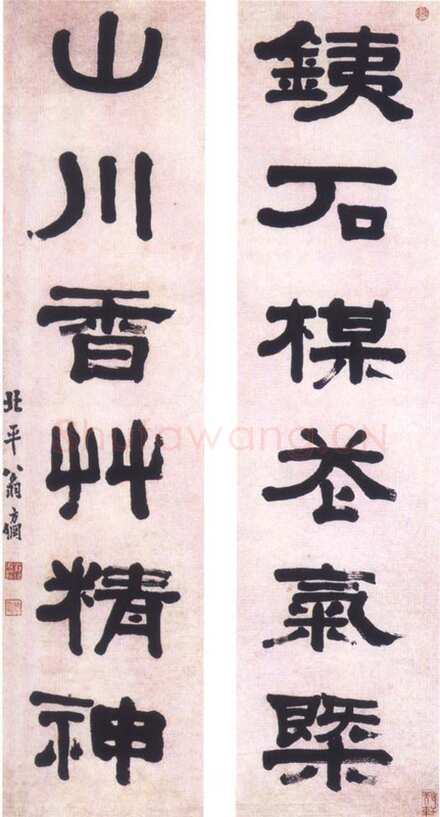 銕石楳花氣槩
山川香艸精神
北平翁方綱
Shufawang.CN